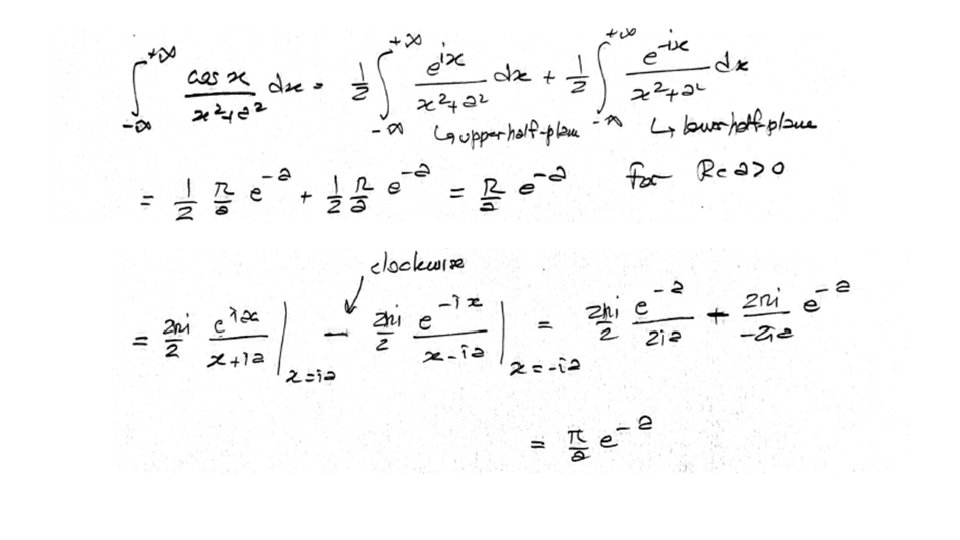 ∫_{-∞}^{+∞} cos x / (x²+a²) dx = 1/2 ∫_{-∞}^{+∞} e^{ix} / (x²+a²) dx + 1/2 ∫_{-∞}^{+∞} e^{-ix} / (x²+a²) dx
↳ upper half-plane ↳ lower half-plane
= 1/2 π/a e^{-a} + 1/2 π/a e^{-a} = π/a e^{-a} for Re a>0
clockwise
= 2πi/2 e^{ix} / (x+ia) |_{x=ia} - 2πi/2 e^{-ix} / (x-ia) |_{x=-ia} = 2πi/2 e^{-a} / 2ia + 2πi / -2ia e^{-a}
= π/a e^{-a}